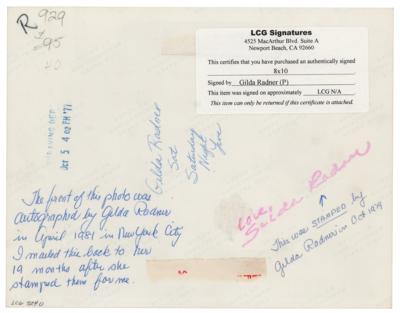 R 929
95
LCG Signatures
4525 MacArthur Blvd. Suite A
Newport Beach, CA 92660
This certifies that you have purchased an authentically signed
8x10
Signed by Gilda Radner (P)
This item was signed on approximately LCG N/A
This item can only be returned if this certificate is attached.
OCT 5 4 02 PM '77
Gilda Radner
Sat
Saturday
Night
Live
Love,
Gilda Radner
This was STAMPED by
Gilda Radner in Oct 1979
The front of this photo was
autographed by Gilda Radner
in April 1981 in New York City
I mailed this back to her
19 months after she
stamped them for me.
LCG